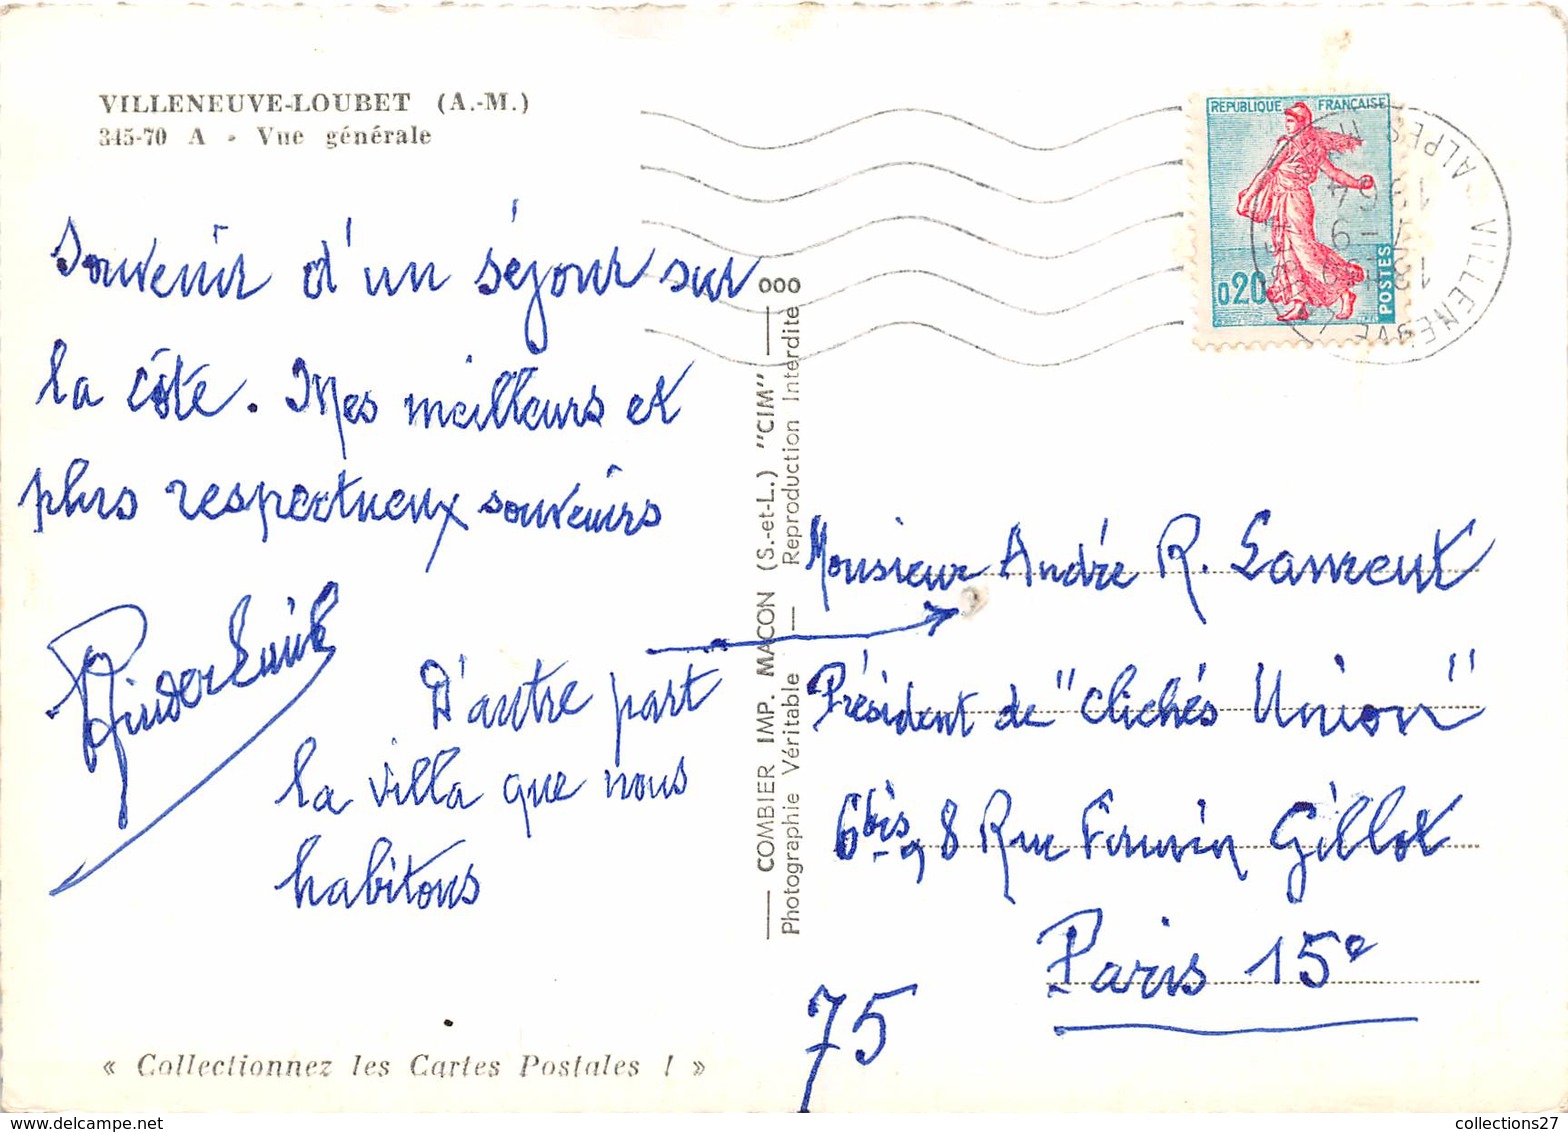 VILLENEUVE-LOUBET (A.-M.)
345-70 A - Vue générale
Souvenir d'un séjour sur
la côte. Mes meilleurs et
plus respectueux souvenirs
D'autre part
la villa que nous
habitons
« Collectionnez les Cartes Postales ! »
COMBIER IMP. MACON (S.-et-L.) "CIM"
Photographie Véritable — Reproduction Interdite
REPUBLIQUE FRANÇAISE
0,20
POSTES
Monsieur André R. Laurent
Président de "Clichés Union"
6bis, 8 Rue Fourvin Gillot
Paris 15e
75
collections27